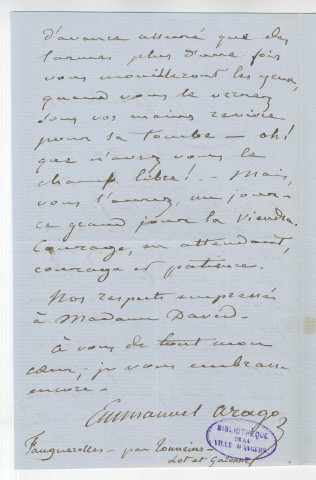 d'avance assuré que des
larmes plus d'une fois
vous mouilleront les yeux,
quand vous le verrez
sous vos mains revivre
pour sa tombe — oh!
que n'avez vous le
champ libre! — Mais,
vous l'aurez, un jour —
ce grand jour là viendra.
Courage, en attendant,
courage et patience.
Nos respects empressés
à Madame David —
à vous de tout mon
cœur; je vous embrasse
encore —
Emmanuel Arago
BIBLIOTHÈQUE
DE LA
VILLE D'ANGERS
Fauguerolles — par Tonneins —
Lot et Garonne